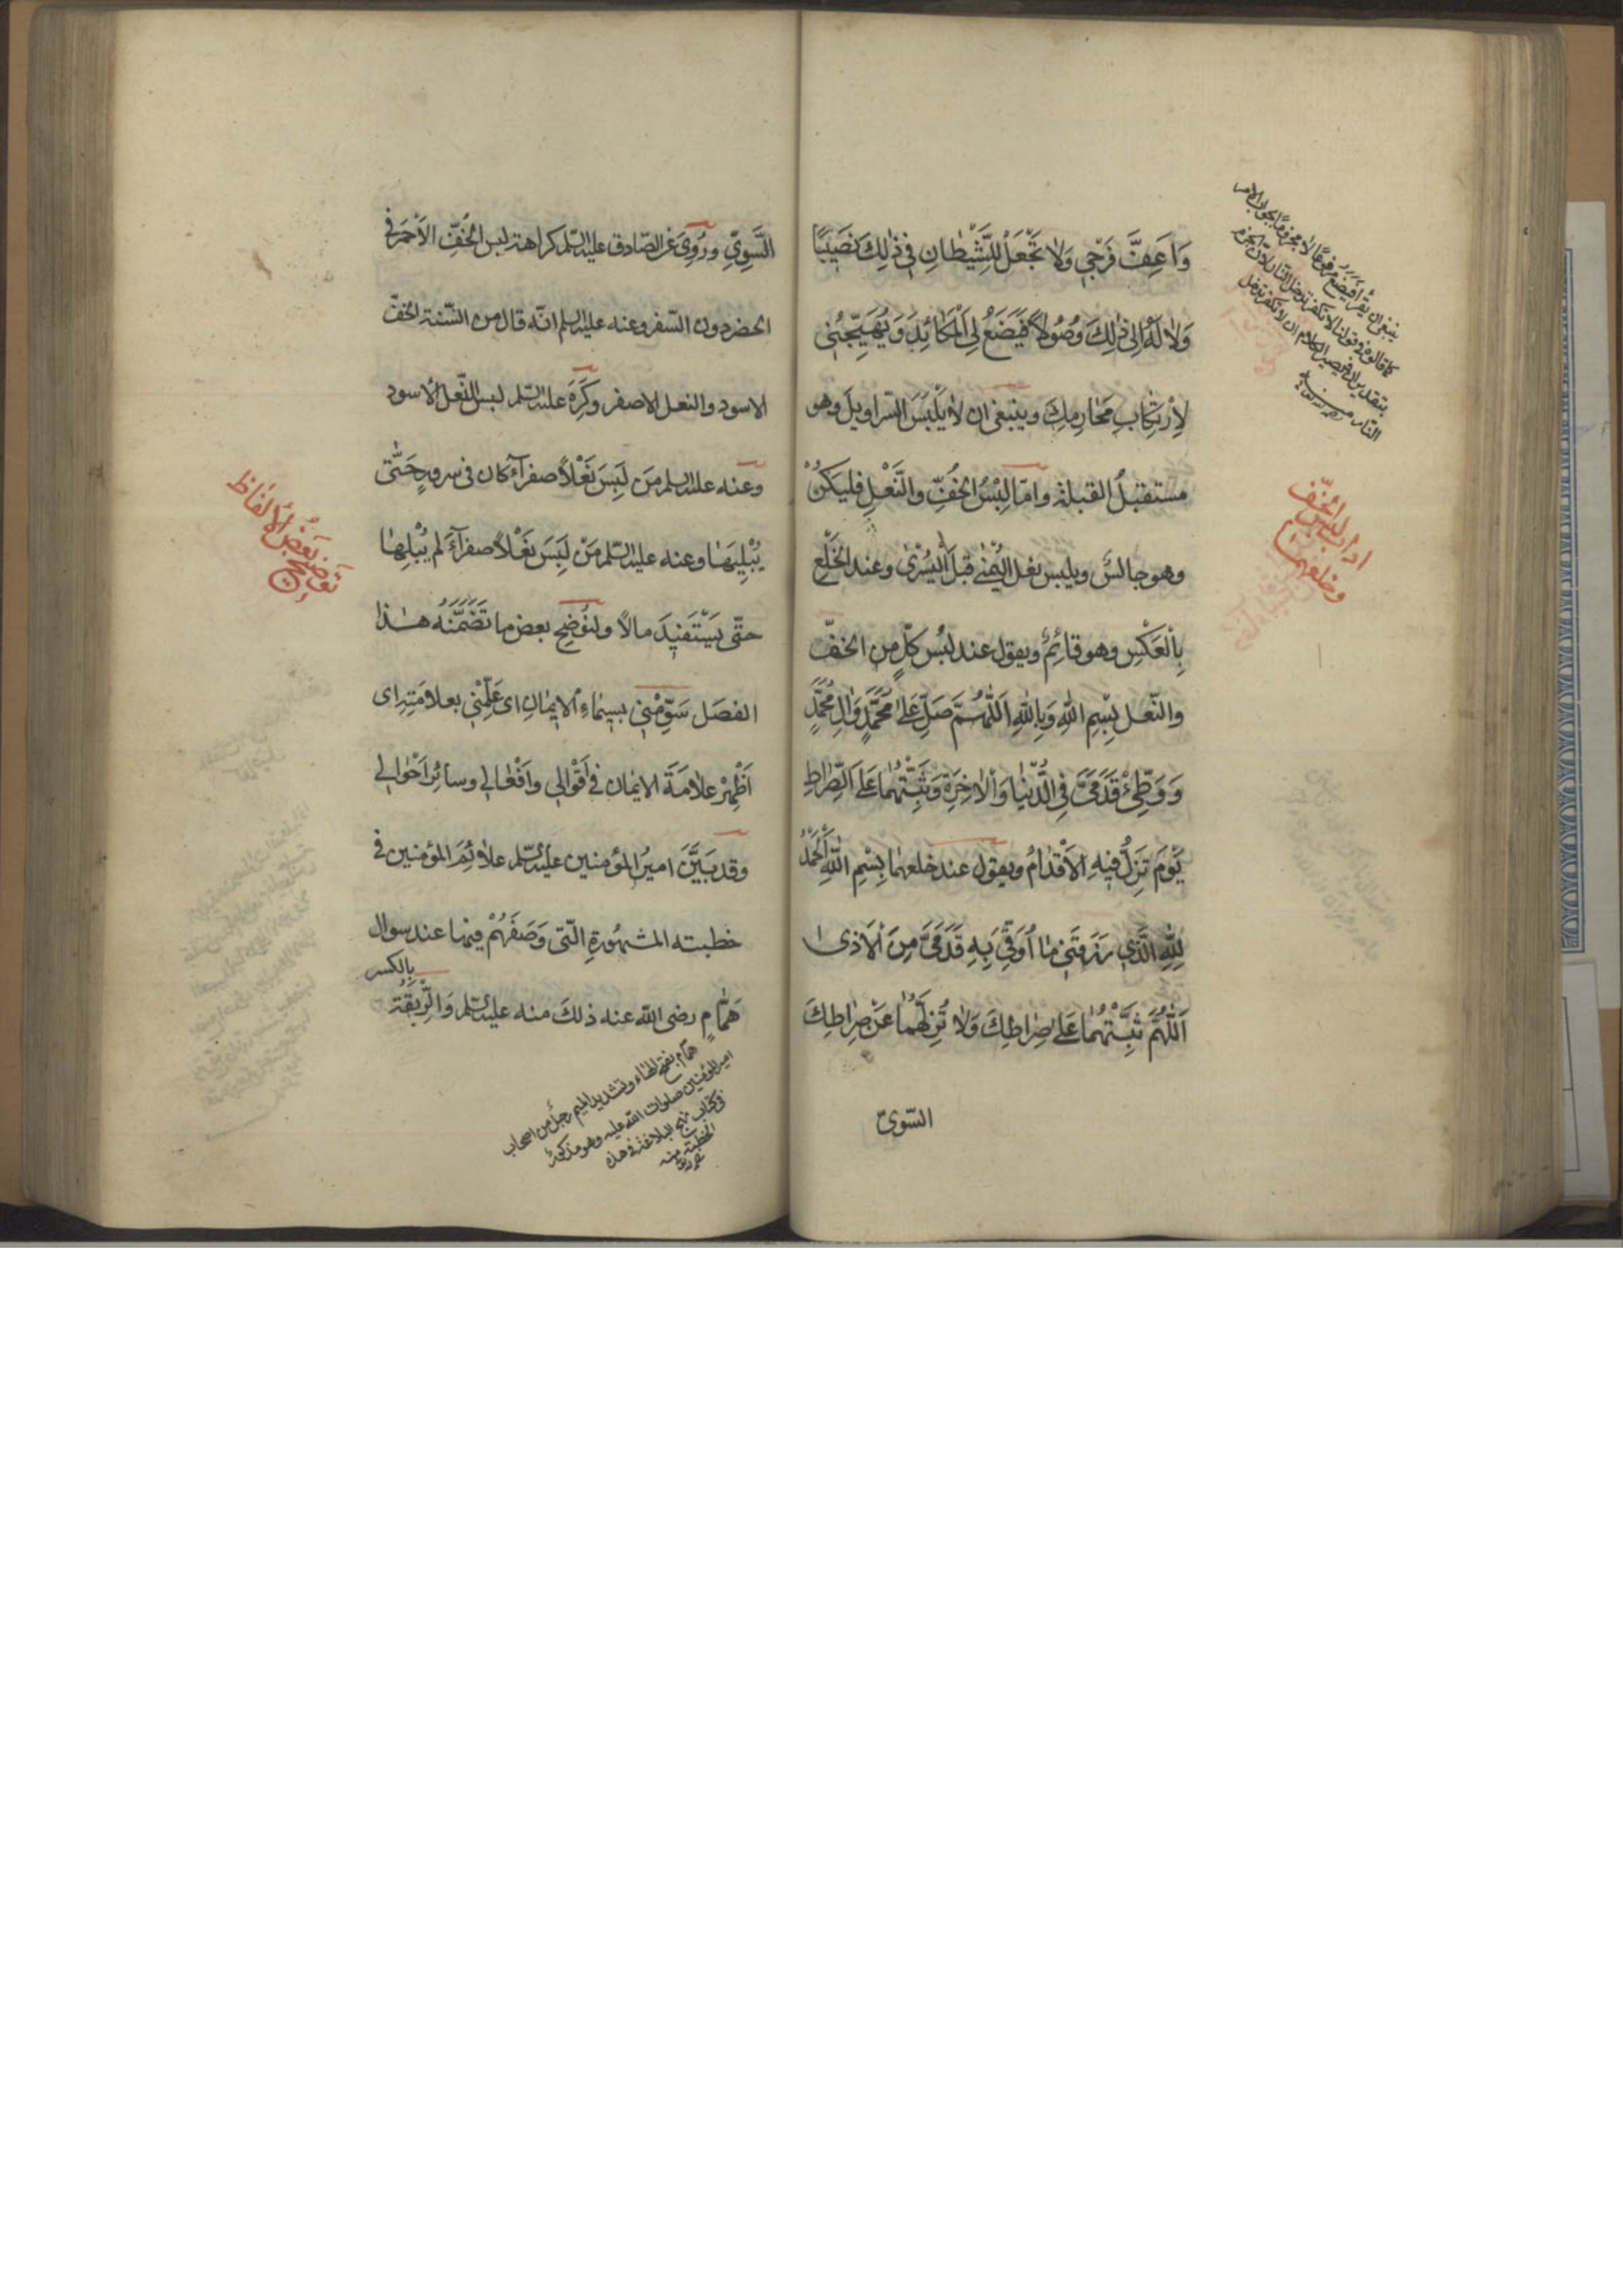 وَاَعِفَّ فَرْجِي وَلاٰ تَجْعَلْ لِلشَّيْطٰانِ فِي ذٰلِكَ نَصِيبًا
وَلاٰ لَهُ اِلىٰ ذٰلِكَ وُصُولاً فَيَضَعُ لِيَ الْمَكٰائِدَ وَيُهَيِّجُنِي
لِاِرْتِكٰابِ مَحٰارِمِكَ وينبغى ان لاٰ يَلْبَسَ السّراويلَ وهو
مستقبلُ القبلة وامّا لِبْسُ الخُفِّ والنَّعْلِ فليكنْ
وهو جالسٌ ويلبس نعل اليُمْنىٰ قبلَ الْيُسْرىٰ وعند الخَلْعِ
بِالْعَكْسِ وهو قائِمٌ ويقول عند لبْس كلٍّ من الخفّ
والنّعل بِسْمِ اللهِ وَبِاللهِ اَللّٰهُمَّ صَلِّ عَلىٰ مُحَمَّدٍ وَاٰلِ مُحَمَّدٍ
وَوَطِّئْ قَدَمَيَّ فِي الدُّنْيٰا وَالْاٰخِرَةِ وَثَبِّتْهُمٰا عَلَى الصِّرٰاطِ
يَوْمَ تَزِلُّ فِيهِ الاَقْدٰامُ ويقول عند خلعهمٰا بِسْمِ اللهِ اَلْحَمْدُ
لِلّٰهِ الَّذِي رَزَقَنِي مٰا اُوَقِّي بِهِ قَدَمَيَّ مِنَ الْاَذىٰ
اَللّٰهُمَّ ثَبِّتْهُمٰا عَلىٰ صِرٰاطِكَ وَلاٰ تُزِلَّهُمٰا عَنْ صِرٰاطِكَ
السّوىّ
ينبغى ان يقرأ فيضع مرفوعًا لا مجزومًا بجواب الامر
كما قالوه فى قولنا لا تكفر تدخل النّار لانّ الجزم
بتقدير ان فيصير الكلام ان لا تكفر تدخل
النّار منه
اداب لبس الخفّ
وخلعهما
السَّوِيِّ ورُوِىَ عن الصّادق عليه السّلم كراهة لبس الخُفِّ الاَحْمَرِ فى
الحضر دون السّفر وعنه عليه السلم انّه قال من السّنة الخفّ
الاسود والنعل الاصفر وكَرِهَ عليه السّلم لبس النّعل الاسود
وعنه عليه السلم مَن لَبِسَ نَعْلاً صفرآءَ كان فى سرورٍ حَتّٰى
يُبْلِيَهٰا وعنه عليه السّلم مَنْ لَبِسَ نَعْلاً صفرآءَ لم يُبْلِهٰا
حتّى يَسْتَفيِدَ مالاً ولنُوضِح بعض ما تَضَمَّنَهُ هٰذا
الفصل سَوِّمْنِي بِسِيمٰاءِ الْايمٰانِ اى عَلِّمْنِي بعلامَتِهِ اى
اَظْهِرْ عَلاٰمَةَ الايمٰان فى اَقْوٰالِي وافْعٰالِي وسائِر اَحْوٰالِي
وقد بَيَّنَ اميرُ المؤمنين عليه السّلم علاٰئِمَ المؤمنين فى
خطبته المشهُورةِ الّتى وَصَفَهُمْ فيها عند سؤال
هَمّامٍ رضى الله عنه ذلكَ منه عليه السّلم وَالرِّبْقَةُ
بالكسر
همّام بفتح الهاء وتشديد الميم رجل من اصحاب
امير المؤمنين صلوات الله عليه وهو مذكور
فى كتاب نهج البلاغة فى هذه
الخطبة منه
تَوضيحُ بَعْضِ الاَلْفَاظِ